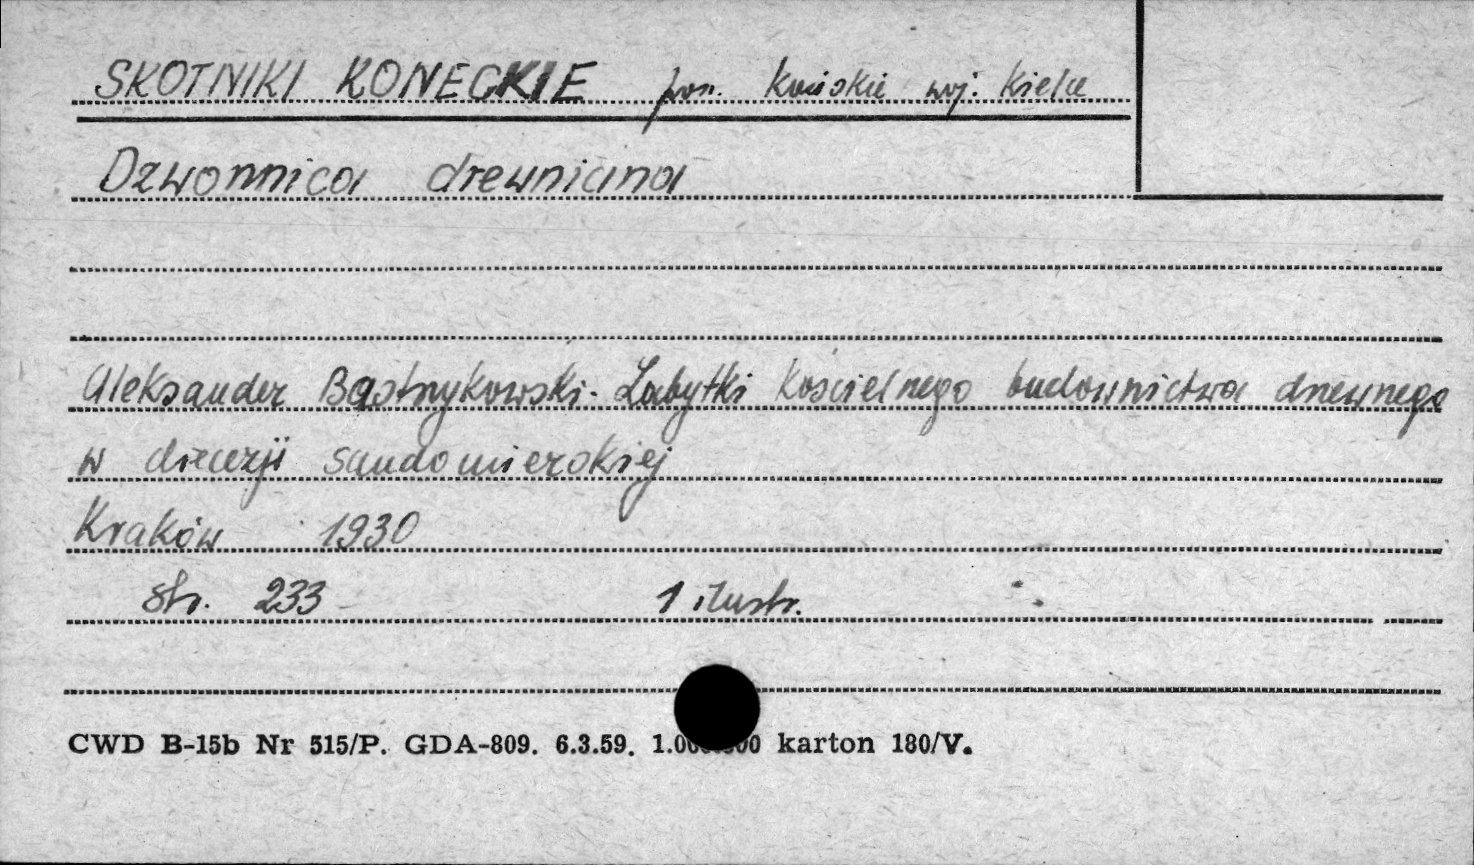 SKOTNIKI KONECKIE pow. Końskie woj. Kielce
Dzwonnica drewniana
Aleksander Bastrzykowski - Zabytki kościelnego budownictwa drzewnego
w diecezji sandomierskiej
Kraków 1930
str. 233 1 ilustr.
CWD B-15b Nr 515/P. GDA-809. 6.3.59. karton 180/V.